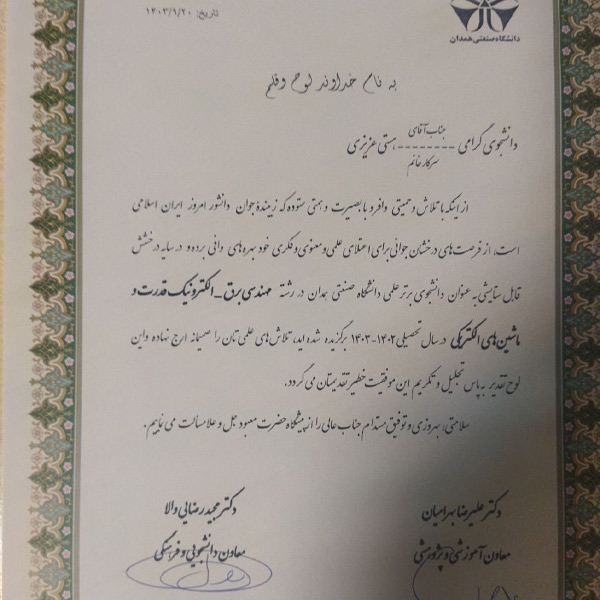 دانشگاه صنعتی همدان
تاریخ: ۱۴۰۳/۹/۲۰
به نام خداوند لوح و قلم
جناب آقای
دانشجوی گرامی -------- هستی عزیزی
سرکار خانم
از اینکه با تلاش و جمیتی وافر و با بصیرت و همتی ستوده که زیبندۀ جوان دانشور امروز ایران اسلامی
است، از فرصت های درخشان جوانی برای اعتلای علمی و معنوی و فکری خود بهره های وافی برده و در سایه درخشش
قابل ستایشی به عنوان دانشجوی برتر علمی دانشگاه صنعتی همدان در رشته مهندسی برق - الکترونیک قدرت و
ماشین های الکتریکی در سال تحصیلی ۱۴۰۲-۱۴۰۳ برگزیده شده اید، تلاش های علمی تان را صمیمانه ارج نهاده و این
لوح تقدیر به پاس تجلیل و تکریم این موفقیت خطیر تقدیمتان می گردد.
سلامتی، بهروزی و توفیق مستدام جناب عالی را از پیشگاه حضرت معبود جل و علا مسألت می نماییم.
دکتر علیرضا بهرامیان
معاون آموزشی و پژوهشی
دکتر مجید رضایی والا
معاون دانشجویی و فرهنگی